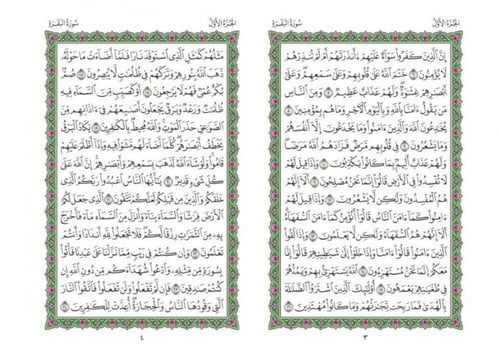 الجُزْءُ الأَوَّلُ
سُورَةُ البَقَرَةِ
إِنَّ ٱلَّذِينَ كَفَرُوا۟ سَوَآءٌ عَلَيْهِمْ ءَأَنذَرْتَهُمْ أَمْ لَمْ تُنذِرْهُمْ
لَا يُؤْمِنُونَ ٦ خَتَمَ ٱللَّهُ عَلَىٰ قُلُوبِهِمْ وَعَلَىٰ سَمْعِهِمْ وَعَلَىٰٓ
أَبْصَٰرِهِمْ غِشَٰوَةٌ وَلَهُمْ عَذَابٌ عَظِيمٌ ٧ وَمِنَ ٱلنَّاسِ
مَن يَقُولُ ءَامَنَّا بِٱللَّهِ وَبِٱلْيَوْمِ ٱلْءَاخِرِ وَمَا هُم بِمُؤْمِنِينَ ٨
يُخَٰدِعُونَ ٱللَّهَ وَٱلَّذِينَ ءَامَنُوا۟ وَمَا يَخْدَعُونَ إِلَّآ أَنفُسَهُمْ وَمَا
يَشْعُرُونَ ٩ فِى قُلُوبِهِم مَّرَضٌ فَزَادَهُمُ ٱللَّهُ مَرَضًا
وَلَهُمْ عَذَابٌ أَلِيمٌۢ بِمَا كَانُوا۟ يَكْذِبُونَ ١٠ وَإِذَا قِيلَ لَهُمْ
لَا تُفْسِدُوا۟ فِى ٱلْأَرْضِ قَالُوٓا۟ إِنَّمَا نَحْنُ مُصْلِحُونَ ١١ أَلَآ
إِنَّهُمْ هُمُ ٱلْمُفْسِدُونَ وَلَٰكِن لَّا يَشْعُرُونَ ١٢ وَإِذَا قِيلَ لَهُمْ
ءَامِنُوا۟ كَمَآ ءَامَنَ ٱلنَّاسُ قَالُوٓا۟ أَنُؤْمِنُ كَمَآ ءَامَنَ ٱلسُّفَهَآءُ
أَلَآ إِنَّهُمْ هُمُ ٱلسُّفَهَآءُ وَلَٰكِن لَّا يَعْلَمُونَ ١٣ وَإِذَا لَقُوا۟
ٱلَّذِينَ ءَامَنُوا۟ قَالُوٓا۟ ءَامَنَّا وَإِذَا خَلَوْا۟ إِلَىٰ شَيَٰطِينِهِمْ قَالُوٓا۟ إِنَّا
مَعَكُمْ إِنَّمَا نَحْنُ مُسْتَهْزِءُونَ ١٤ ٱللَّهُ يَسْتَهْزِئُ بِهِمْ وَيَمُدُّهُمْ
فِى طُغْيَٰنِهِمْ يَعْمَهُونَ ١٥ أُو۟لَٰٓئِكَ ٱلَّذِينَ ٱشْتَرَوُا۟ ٱلضَّلَٰلَةَ
بِٱلْهُدَىٰ فَمَا رَبِحَت تِّجَٰرَتُهُمْ وَمَا كَانُوا۟ مُهْتَدِينَ ١٦
٣
الجُزْءُ الأَوَّلُ
سُورَةُ البَقَرَةِ
مَثَلُهُمْ كَمَثَلِ ٱلَّذِى ٱسْتَوْقَدَ نَارًا فَلَمَّآ أَضَآءَتْ مَا حَوْلَهُۥ
ذَهَبَ ٱللَّهُ بِنُورِهِمْ وَتَرَكَهُمْ فِى ظُلُمَٰتٍ لَّا يُبْصِرُونَ ١٧ صُمٌّۢ
بُكْمٌ عُمْىٌ فَهُمْ لَا يَرْجِعُونَ ١٨ أَوْ كَصَيِّبٍ مِّنَ ٱلسَّمَآءِ فِيهِ
ظُلُمَٰتٌ وَرَعْدٌ وَبَرْقٌ يَجْعَلُونَ أَصَٰبِعَهُمْ فِىٓ ءَاذَانِهِم مِّنَ
ٱلصَّوَٰعِقِ حَذَرَ ٱلْمَوْتِ وَٱللَّهُ مُحِيطٌۢ بِٱلْكَٰفِرِينَ ١٩ يَكَادُ ٱلْبَرْقُ
يَخْطَفُ أَبْصَٰرَهُمْ كُلَّمَآ أَضَآءَ لَهُم مَّشَوْا۟ فِيهِ وَإِذَآ أَظْلَمَ عَلَيْهِمْ
قَامُوا۟ وَلَوْ شَآءَ ٱللَّهُ لَذَهَبَ بِسَمْعِهِمْ وَأَبْصَٰرِهِمْ إِنَّ ٱللَّهَ عَلَىٰ
كُلِّ شَىْءٍ قَدِيرٌ ٢٠ يَٰٓأَيُّهَا ٱلنَّاسُ ٱعْبُدُوا۟ رَبَّكُمُ ٱلَّذِى
خَلَقَكُمْ وَٱلَّذِينَ مِن قَبْلِكُمْ لَعَلَّكُمْ تَتَّقُونَ ٢١ ٱلَّذِى جَعَلَ لَكُمُ
ٱلْأَرْضَ فِرَٰشًا وَٱلسَّمَآءَ بِنَآءً وَأَنزَلَ مِنَ ٱلسَّمَآءِ مَآءً فَأَخْرَجَ
بِهِۦ مِنَ ٱلثَّمَرَٰتِ رِزْقًا لَّكُمْ فَلَا تَجْعَلُوا۟ لِلَّهِ أَندَادًا وَأَنتُمْ
تَعْلَمُونَ ٢٢ وَإِن كُنتُمْ فِى رَيْبٍ مِّمَّا نَزَّلْنَا عَلَىٰ عَبْدِنَا فَأْتُوا۟
بِسُورَةٍ مِّن مِّثْلِهِۦ وَٱدْعُوا۟ شُهَدَآءَكُم مِّن دُونِ ٱللَّهِ إِن
كُنتُمْ صَٰدِقِينَ ٢٣ فَإِن لَّمْ تَفْعَلُوا۟ وَلَن تَفْعَلُوا۟ فَٱتَّقُوا۟ ٱلنَّارَ
ٱلَّتِى وَقُودُهَا ٱلنَّاسُ وَٱلْحِجَارَةُ أُعِدَّتْ لِلْكَٰفِرِينَ ٢٤
٤